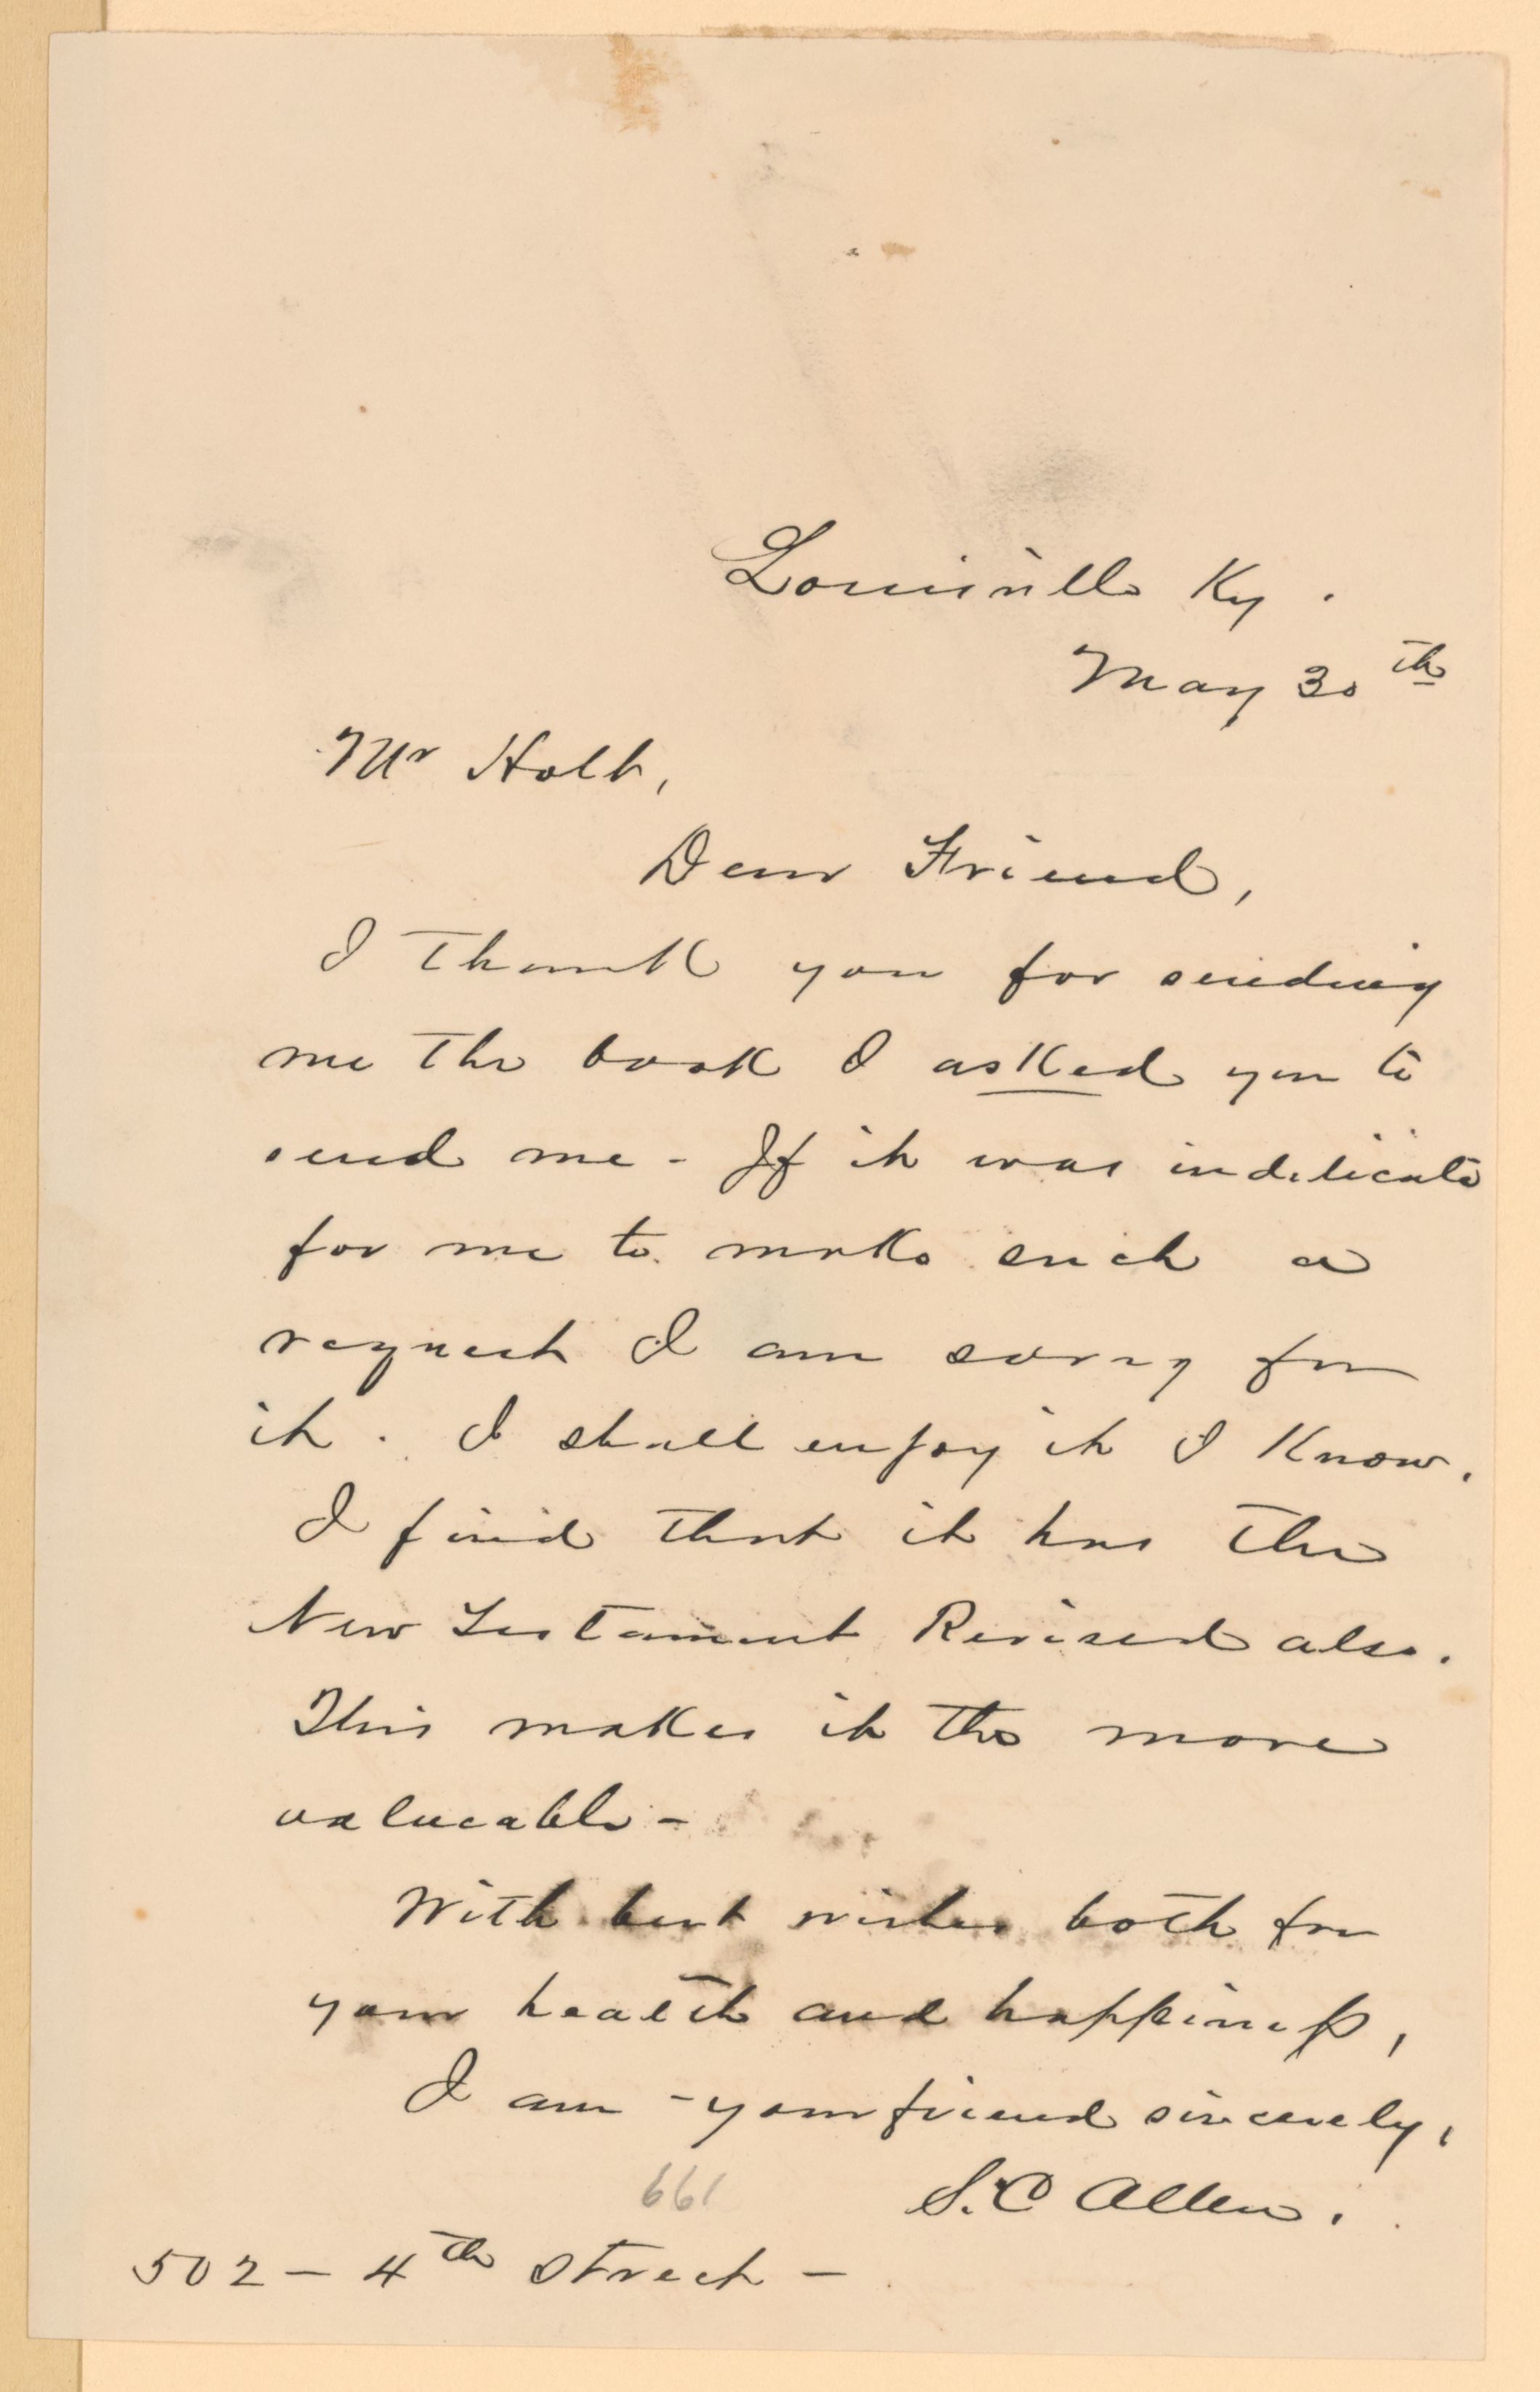 Louisville Ky.
May 30th
Mr Holt,
Dear Friend,
I thank you for sending
me the book I asked you to
send me - If it was indelicate
for me to make such a
request I am sorry for
it. I shall enjoy it I know.
I find that it has the
New Testament Revised also.
This makes it the more
valueable -
With best wishes both for
your health and happiness,
I am - your friend sincerely,
661
S.C Allen.
502 - 4th Street -